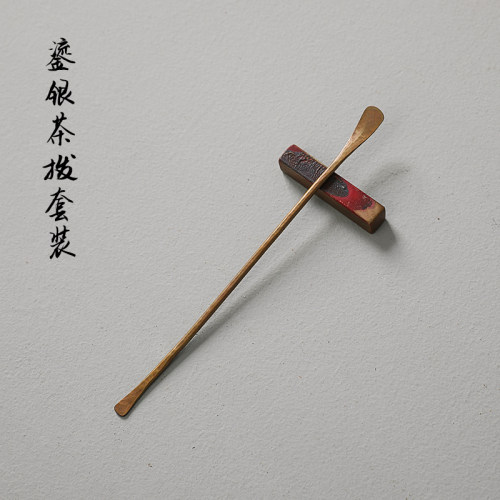 鎏银茶拨套装